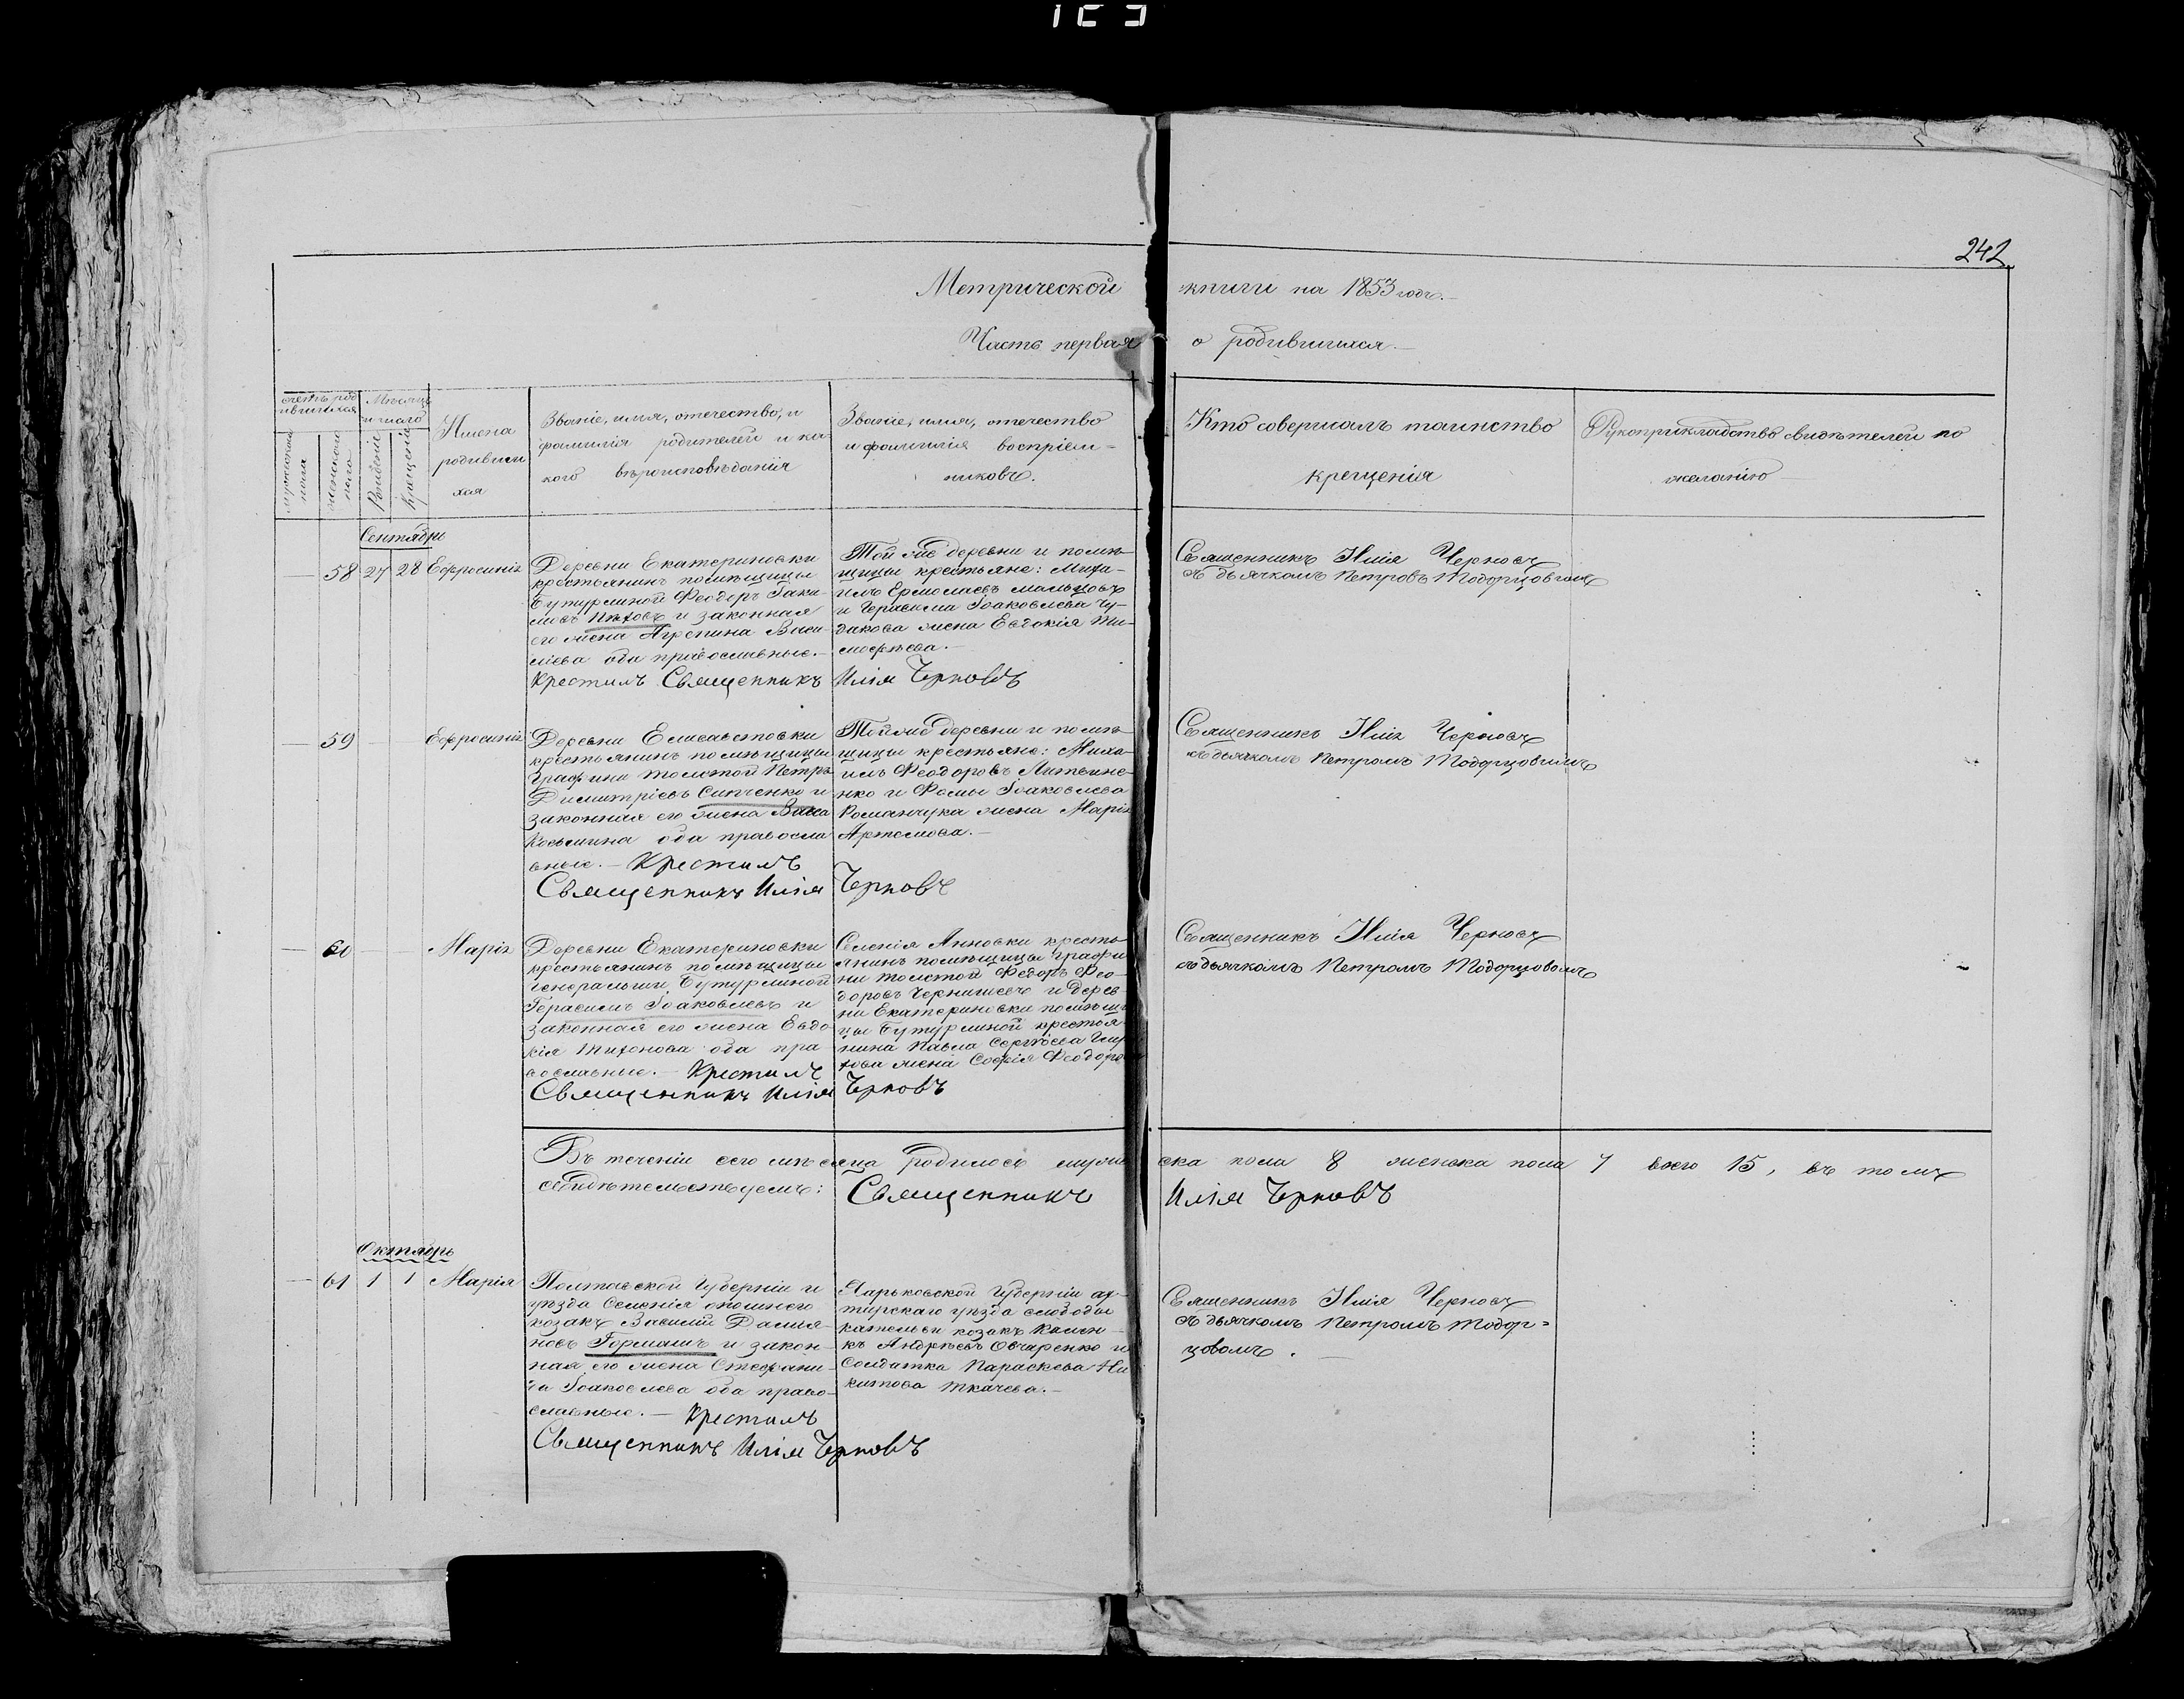 242
Метрической книги на 1853 годъ.
Часть первая о родившихся.
Счетъ родившихся
Мѣсяцъ и число
мужескаго пола
женскаго пола
Рожденія
Крещенія
Имена
родивши
хся
Званіе, имя, отечество, и
фамилія родителей и ка-
кого вѣроисповѣданія
Званіе, имя, отечество
и фамилія воспріем-
никовъ.
Кто совершалъ таинство
крещенія
Рукоприкладство свидѣтелей по
желанію
Сентябрь
58 27 28 Евфросинія
Деревни Екатериновки
крестьянинъ помѣщицы
Бутурлиной Феодоръ Іаки-
мовъ Пѣховъ и законная
его жена Агрепина Васи-
ліева оба православные.
Крестилъ Священникъ Илія Черновъ
Той же деревни и помѣ-
щицы крестьяне: Миха-
илъ Ермолаевъ Мальцовъ
и Герасима Іоаковлева Чу-
дакова жена Евдокія Ти-
мофѣева.
Священникъ Илія Черновъ
съ дьячкомъ Петромъ Тодорцовымъ
59 Евфросинія
Деревни Елисаветовки
крестьянинъ помѣщицы
Графини Толстой Петръ
Димитріевъ Сипченко и
законная его жена
Косьмина оба правосла
вные. Крестилъ
Священникъ Илія Черновъ
Той же деревни и помѣ-
щицы крестьяне: Миха-
илъ Феодоровъ Литвине-
нко и Фомы Іоаковлева
Романчука жена Марія
Артемова.
Священникъ Илія Черновъ
съ дьячкомъ Петромъ Тодорцовымъ
60 Марія
Деревни Екатериновки
крестьянинъ помѣщицы
Генеральши Бутурлиной
Герасимъ Іоаковлевъ и
законная его жена Евдо
кія Тихонова оба пра
вославные. Крестилъ
Священникъ Илія Черновъ
Селенія Анновки кресть
янинъ помѣщицы Графи
ни Толстой Федоръ Фео-
доровъ Чернишевъ и дерев-
ни Екатериновки помѣщи
цы Бутурлиной крестья
нина Павла Сергѣева
жена Софія Феодоро
Священникъ Илія Черновъ
съ дьячкомъ Петромъ Тодорцовомъ
Въ теченіи сего мѣсяца родилось мужеска пола 8 женска пола 7 всего 15, въ томъ
свидѣтельствуемъ: Священникъ Илія Черновъ
Октябрь
61 1 1 Марія
Полтавской Губерніи и
уѣзда Селенія
козакъ Василій Даміа-
новъ Горманъ и закон-
ная его жена Стефани-
да Іоаковлева оба право-
славные. Крестилъ
Священникъ Илія Черновъ
Харьковской Губерніи ах-
тирскаго уѣзда слободы
Котельви козакъ Калин-
къ Андрѣевъ Овчаренко и
Солдатка Параскева Ни
китова Ткачева.
Священникъ Илія Черновъ
съ дьячкомъ Петромъ Тодор=
цовомъ.